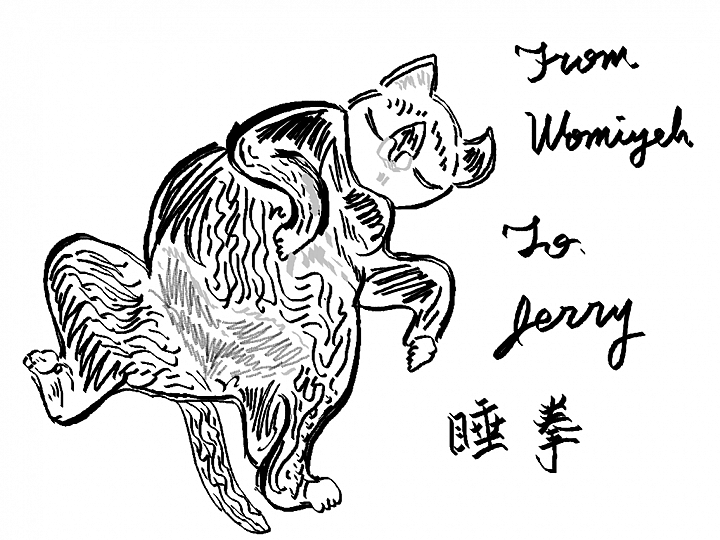 From
Womiyeh
To
Jerry
睡拳